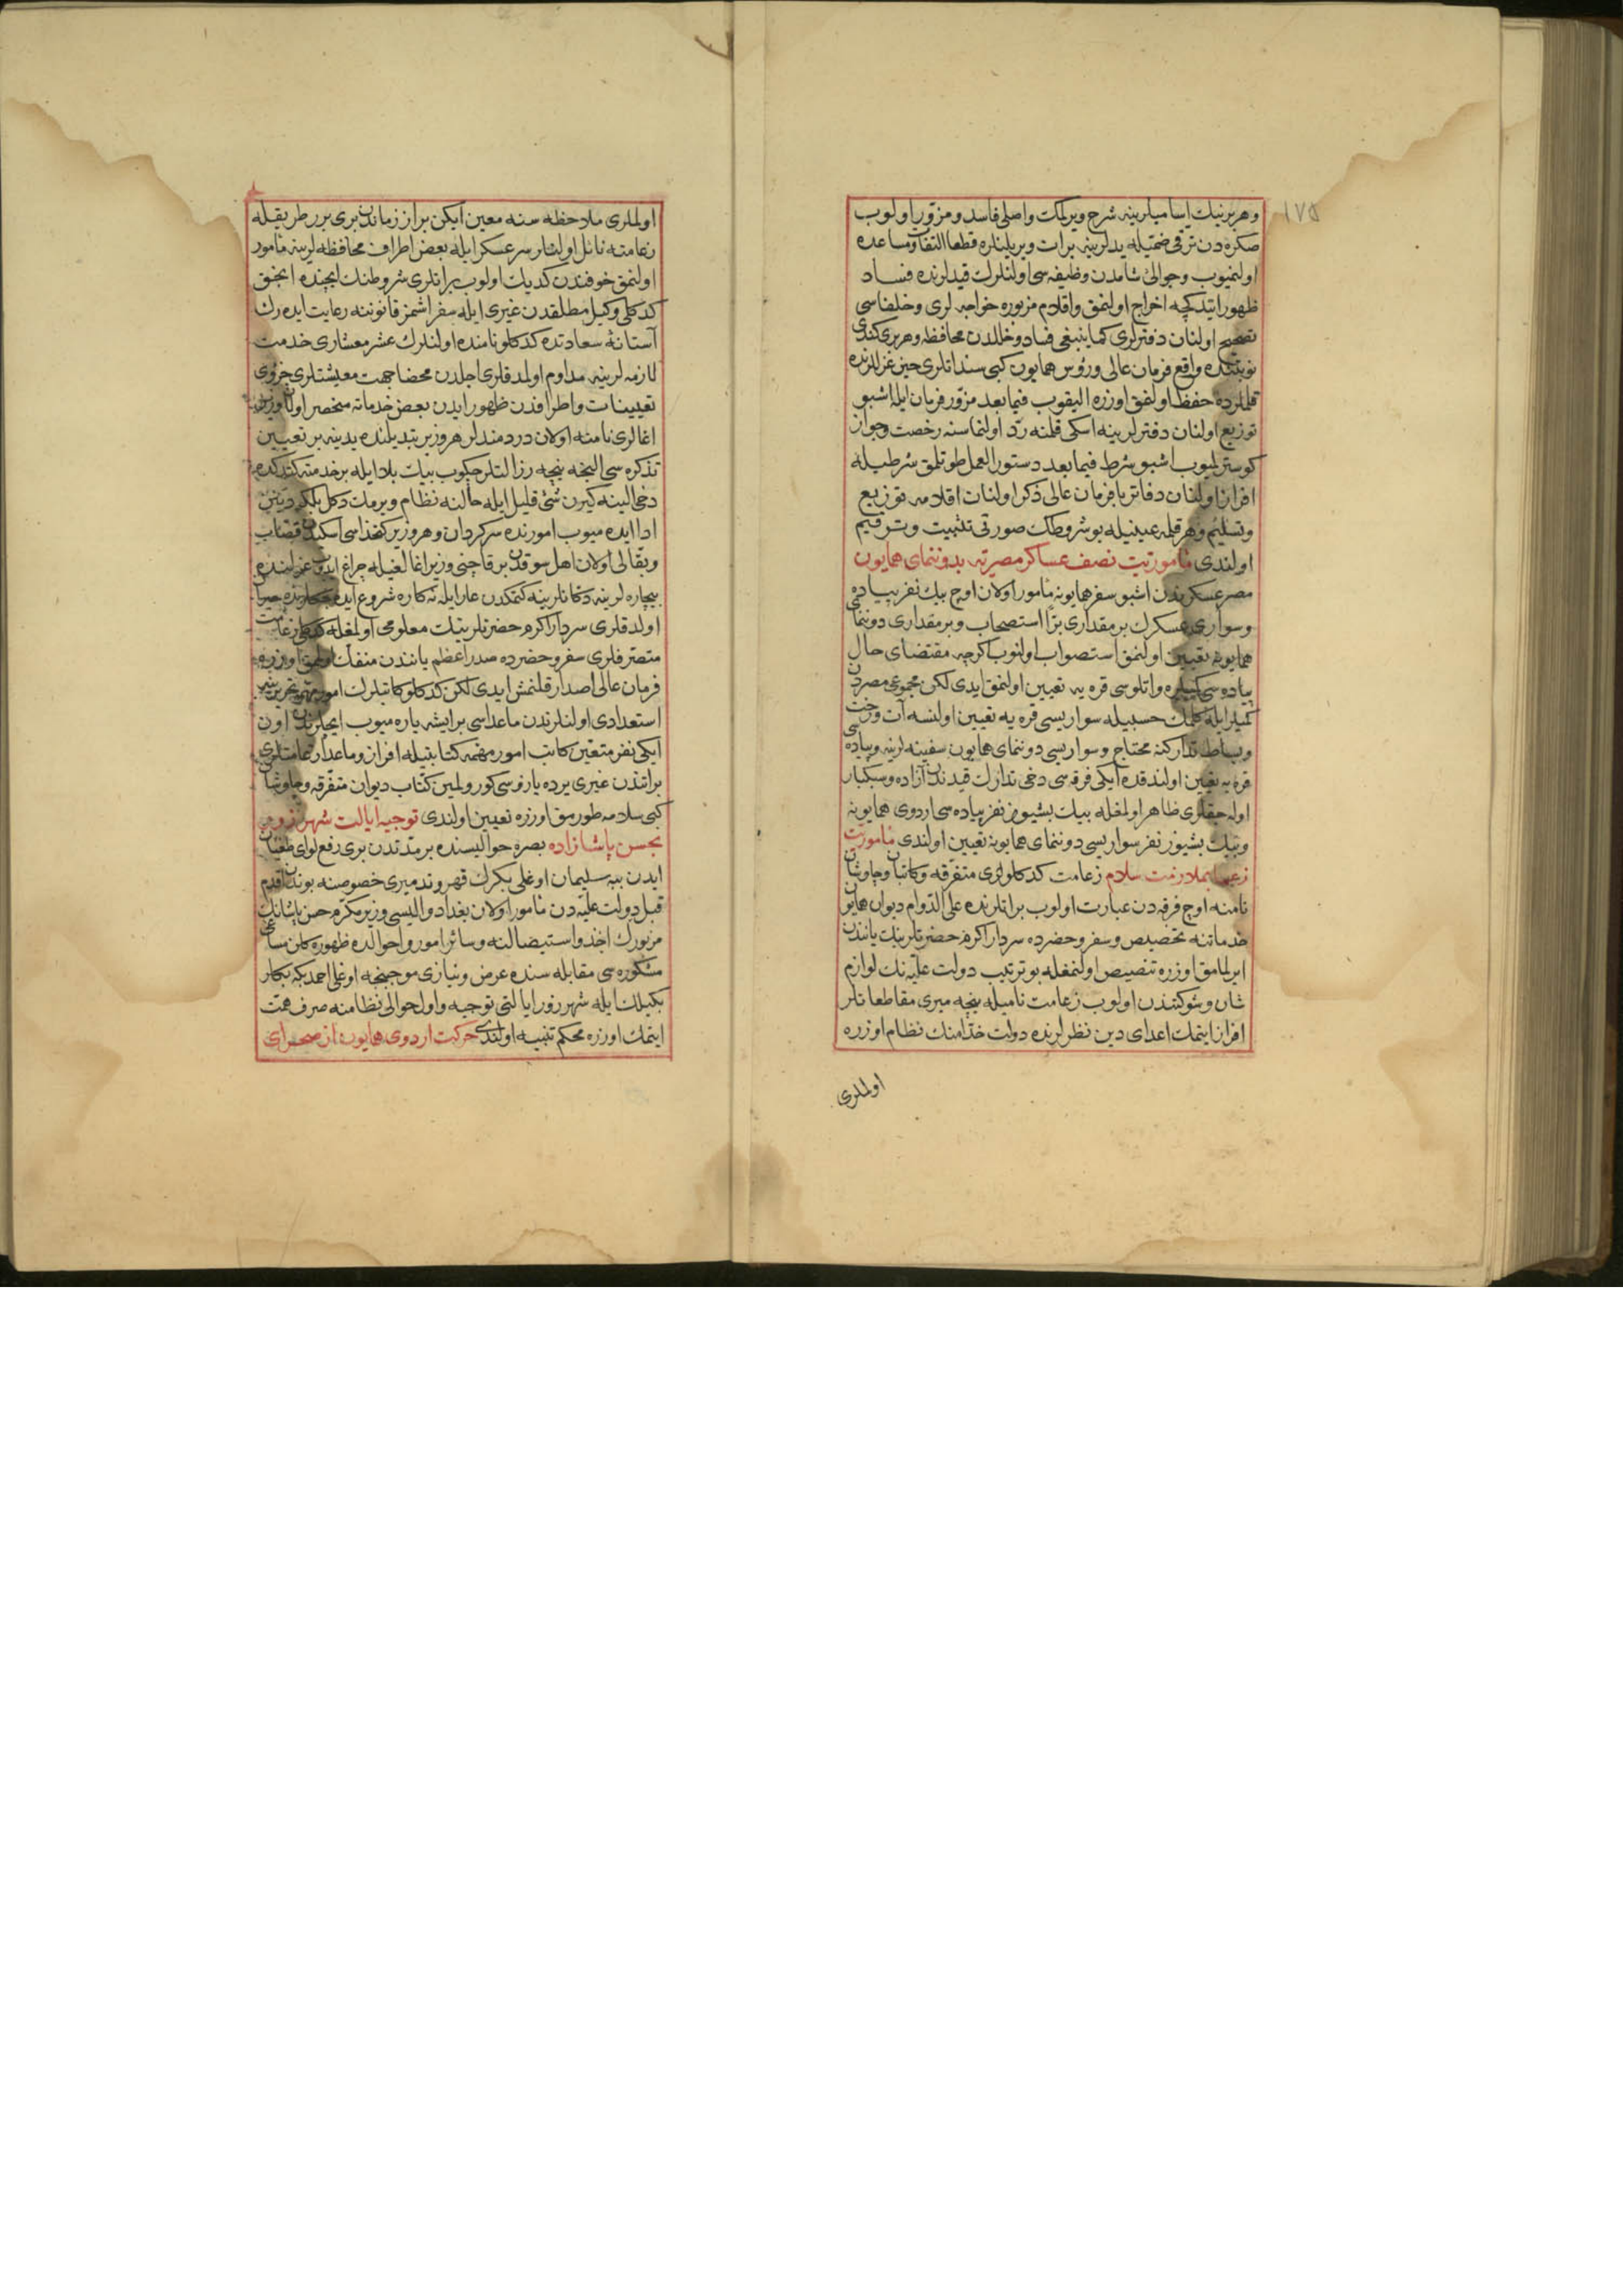 ١٧٥
وهر برينك اساميلرينه شرح ويرلمك واصلى فاسد ومزور اولوب
صكره دن ترقى ضميمه يدلرينه برات ويريلنلره قطعا التفات ومساعده
اولنميوب وجوالئ شامدن وظيفه سى اولنلرك قيدلرنده فساد
ظهور ايتدكجه اخراج اولنمق واقلام مزبوره خواجه لرى وخلفاسى
تصحيح اولنان دفترلرى كما ينبغى فساد وخللدن محافظه وهر برى كندى
نوبتنده واقع فرمان عالى ورؤس همايون كبى سنداتلرى حين عزللرنده
قلملرده حفظ اولنمق اوزره اليقوب فيما بعد مزور فرمان ايله اشبو
توزيع اولنان دفترلرينه اسكى قلمنه رد اولنماسنه رخصت وجواز
كوسترلميوب اشبو شرط فيما بعد دستور العمل طوتلمق شرطيله
افراز اولنان دفاتر با فرمان عالى ذكر اولنان اقلامه توزيع
وتسليم وهر قلمه عينيله بو شروطك صورتى تثبيت وترقيم
اولندى مأموريت نصف عساكر مصريه بدوننماى همايون
مصر عسكرندن اشبو سفر همايونه مأمور اولان اوچ بيك نفر پياده
وسوارى عسكرك بر مقدارى برا استصحاب وبر مقدارى دوننماى
همايونه تعيين اولنمق استصواب اولنوب اكرچه مقتضاى حال
پياده سى كميلره واتلوسى قره يه تعيين اولنمق ايدى لكن مجموعى مصردن
كميلر ايله كلمك حسبيله سواريسى قره يه تعيين اولنسه آت ورخت
وبساط تداركنه محتاج وسواريسى دوننماى همايون سفينه لرينه وپياده سى
قره يه تعيين اولندقده ايكى فرقه سى دخى تدارك قيدندن آزاده وسبكبار
اوله جقلرى ظاهر اولمغله بيك بشيوز نفر پياده سى اردوى همايونه
وبيك بشيوز نفر سواريسى دوننماى همايونه تعيين اولندى مأموريت
زعما بملازمت سلام زعامت كدكلولرى متفرقه وكاتبان وچاوشان
نامنه اوچ فرقه دن عبارت اولوب براتلرنده على الدوام ديوان همايون
خدماتنه تخصيص وسفر وحضرده سردار اكرم حضرتلرينك ياننددن
ايرلمامق اوزره تنصيص اولنمغله بو ترتيب دولت عليه نك لوازم
شان وشوكتندن اولوب زعامت ناميله نيجه ميرى مقاطعاتلر
افراز ايتمك اعداى دين نظرلرنده دولت خدامنك نظام اوزره
اولملرى
اولملرى ملاحظه سنه معين ايكن براز زماندن برى برر طريقله
زعامته نائل اولنلر سرعسكر ايله بعض اطراف محافظه لرينه مأمور
اولنمق خوفندن كديك اولوب براتلرى شروطنك ايچنده انجق
كدكلى وكيل مطلقدن غيرى ايله سفر اشمز قانوننه رعايت ايدرك
آستانهٔ سعادتده كدكلو نامنده اولنلرك عشر معشارى خدمت
لازمه لرينه مداوم اولمدقلرى اجلدن محضا جهت معيشتلرى جزوى
تعيينات واطرافدن ظهور ايدن بعض خدماته منحصر اولان وزير
اغالرى نامنه اولان دردمندلر هر وزير تبديلنده يدينه بر تعيين
تذكره سى النجه نيجه رزالتلر چكوب بيك بلا ايله بر خدمته كتدكده
دخى الينه كيرن شئ قليل ايله حالنه نظام ويرمك دكل بلكه دينن
ادا ايده ميوب امورنده سركردان وهر وزير كتخداسى اسكيدن قصاب
وبقالى اولان اهل سوقدن بر قاچنى وزير اغالغيله چراغ ايدوب عزلنده
بيچاره لرينه دكانلرينه كتمكدن عار ايله نه كاره شروع ايده جكلرنده حيران
اولدقلرى سردار اكرم حضرتلرينك معلومى اولمغله كدكلى زعامت
متصرفلرى سفر وحضرده صدر اعظم ياننددن منفك اولمق اوزره
فرمان عالى اصدار قلنمش ايدى لكن كدكلو كاتبلرك امور مهمه تحريرينه
استعدادى اولنلرندن ماعداسى بر ايشه يارهميوب ايچلرندن اون
ايكى نفر متعين كاتب امور مهمه كتابتيله افراز وماعدا زعامتلرى
براتندن غيرى يرده يازوسى كورولمين كتاب ديوان متفرقه وچاوشان
كبى سلامه طورمق اوزره تعيين اولندى توجيه ايالت شهرزور
بحسن پاشا زاده بصره حواليسنده بر مدتدن برى رفع لواى طغيان
ايدن ببه سليمان اوغلى بكرك قهر وتدميرى خصوصنه بوندن اقدم
قبل دولت عليه دن مأمور اولان بغداد واليسى وزير مكرم حسن پاشانك
مزبورك اخذ واستيصالنه وسائر امور واحوالده ظهوره كلن مساعئ
مشكوره سى مقابله سنده عرض ونيازى موجبنجه اوغلى احمد بكه بكلر
بكيلك ايله شهرزور ايالتى توجيه واول حوالى نظامنه صرف همت
ايتمك اوزره محكم تنبيه اولندى حركت اردوى همايون از صحراى